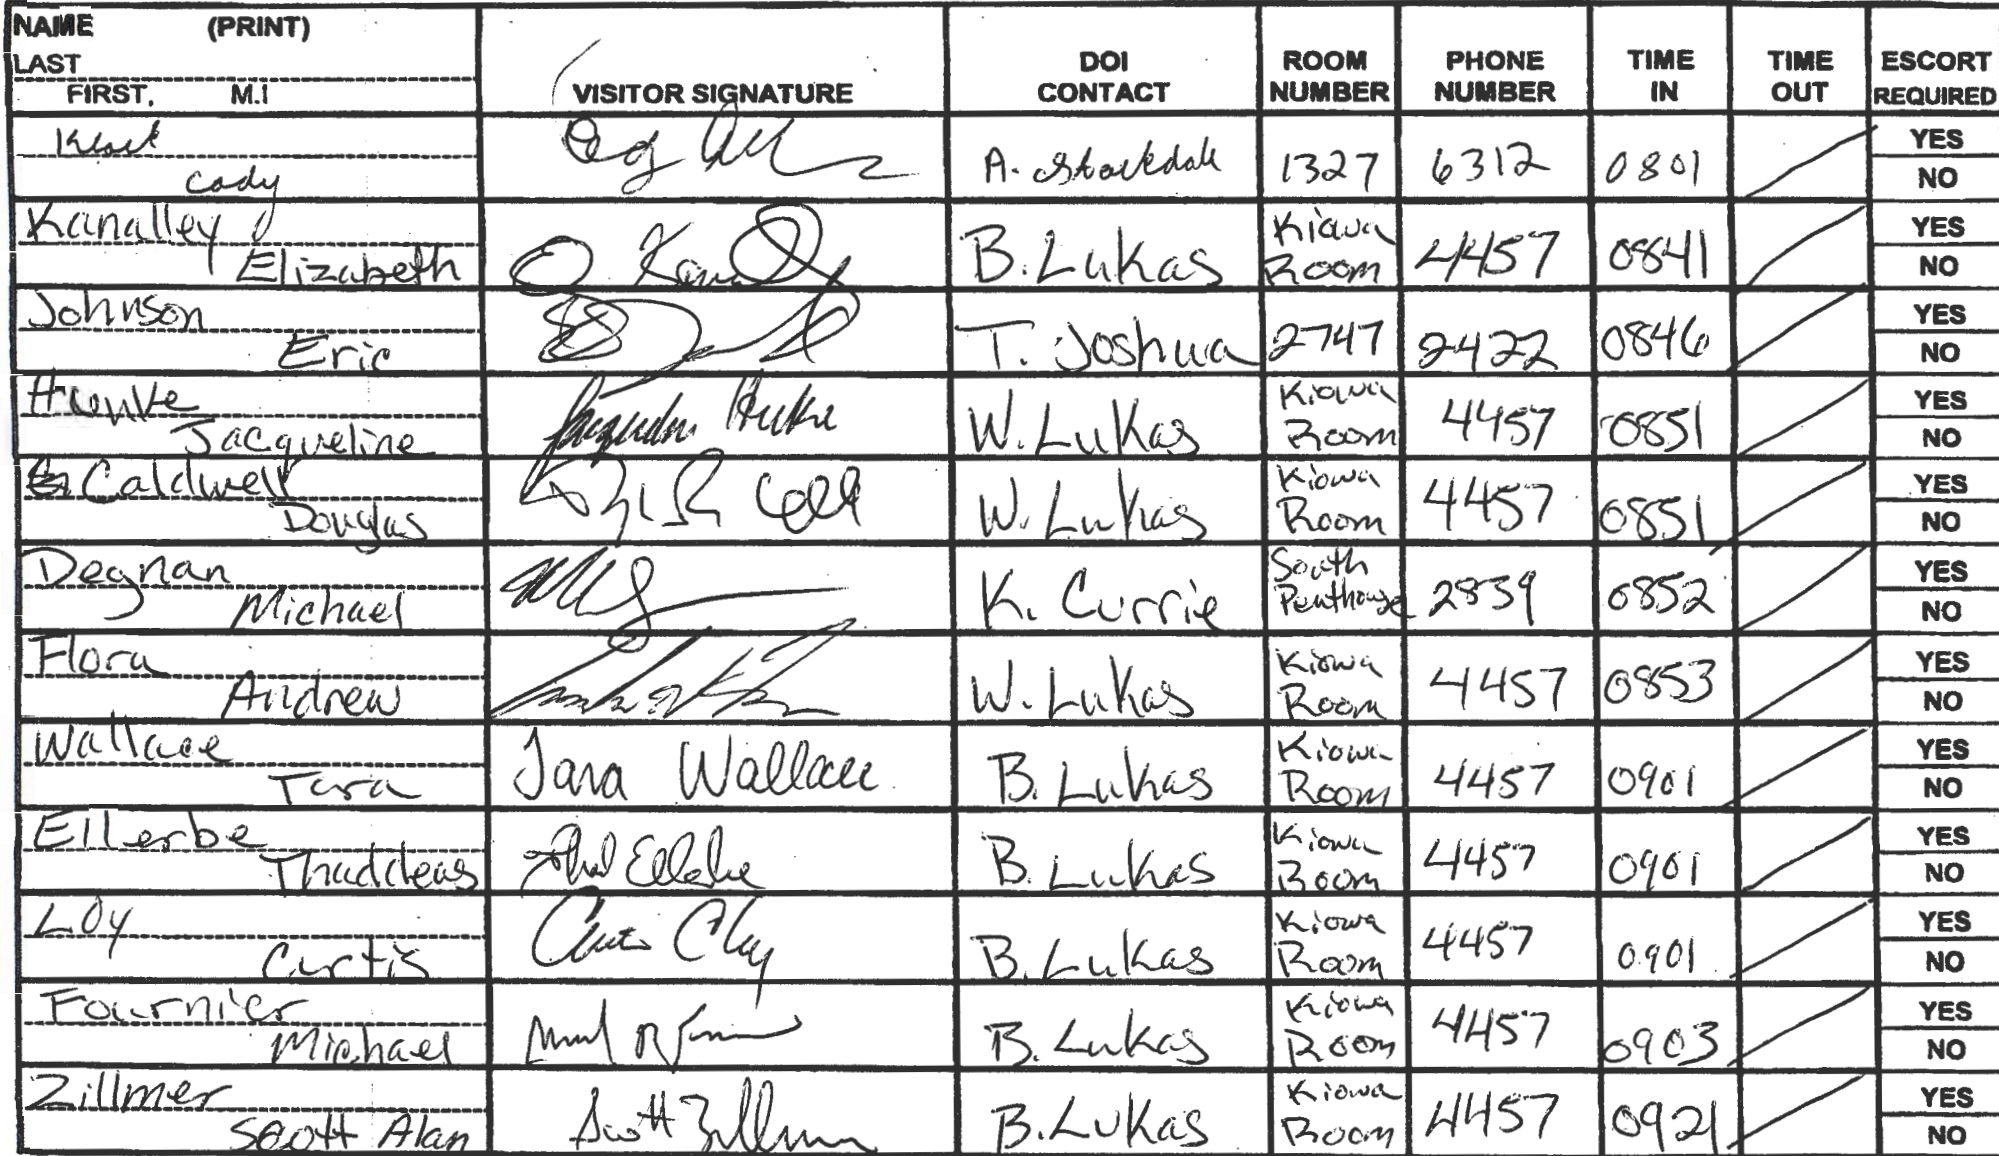 NAME (PRINT)
LAST
FIRST, M.I
VISITOR SIGNATURE
DOI CONTACT
ROOM NUMBER
PHONE NUMBER
TIME IN
TIME OUT
ESCORT REQUIRED
Cody A. Stockdale 1327 6312 0801 YES NO
Kanalley Elizabeth B. Lukas Kiowa Room 4457 0841 YES NO
Johnson Eric T. Joshua 2747 2422 0846 YES NO
Hunke Jacqueline W. Lukas Kiowa Room 4457 0851 YES NO
Caldwell Douglas W. Lukas Kiowa Room 4457 0851 YES NO
Degnan Michael K. Currie South Penthouse 2839 0852 YES NO
Flora Andrew W. Lukas Kiowa Room 4457 0853 YES NO
Wallace Tara Tara Wallace B. Lukas Kiowa Room 4457 0901 YES NO
Ellerbe Thaddeas B. Lukas Kiowa Room 4457 0901 YES NO
Loy Curtis B. Lukas Kiowa Room 4457 0901 YES NO
Fournier Michael B. Lukas Kiowa Room 4457 0903 YES NO
Zillmer Scott Alan Scott Zillmer B. Lukas Kiowa Room 4457 0921 YES NO